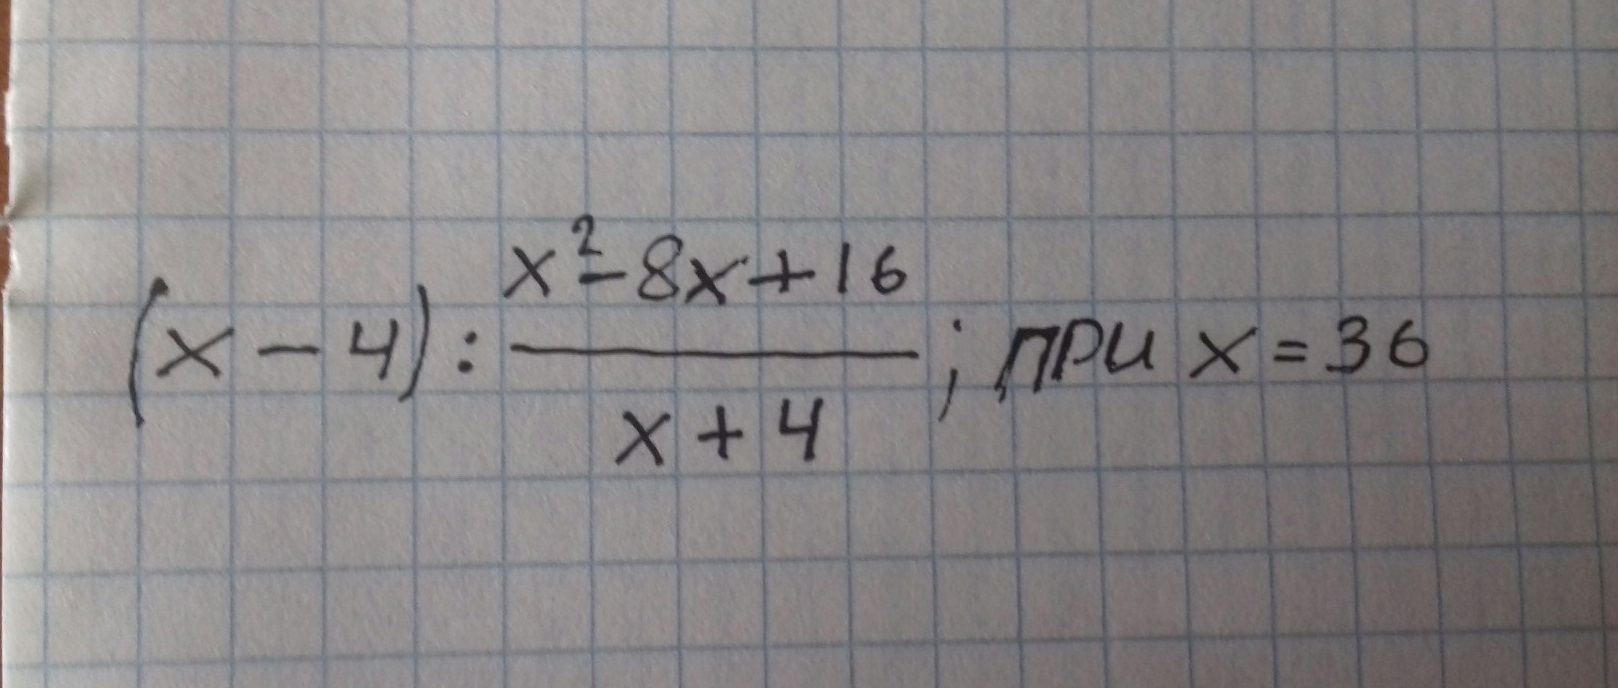 (x-4) : \frac{x^2-8x+16}{x+4} ; при x = 36